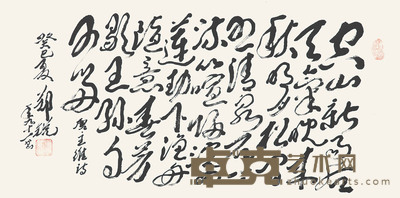 空山新雨後
天氣晚来
秋明月松间
照清泉石上
流竹喧归浣女
莲动下渔舟
随意春芳
歇王孙自
可留 王维诗
癸巳夏 郑锐
卓克艺术网